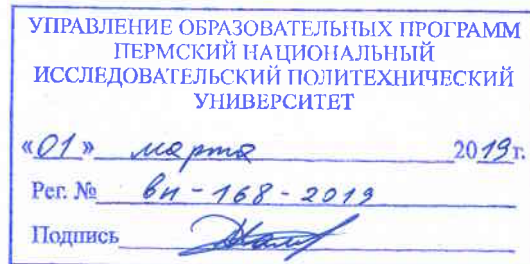 УПРАВЛЕНИЕ ОБРАЗОВАТЕЛЬНЫХ ПРОГРАММ
ПЕРМСКИЙ НАЦИОНАЛЬНЫЙ
ИССЛЕДОВАТЕЛЬСКИЙ ПОЛИТЕХНИЧЕСКИЙ
УНИВЕРСИТЕТ
«01» марта 2019г.
Рег. № вн - 168 - 2019
Подпись